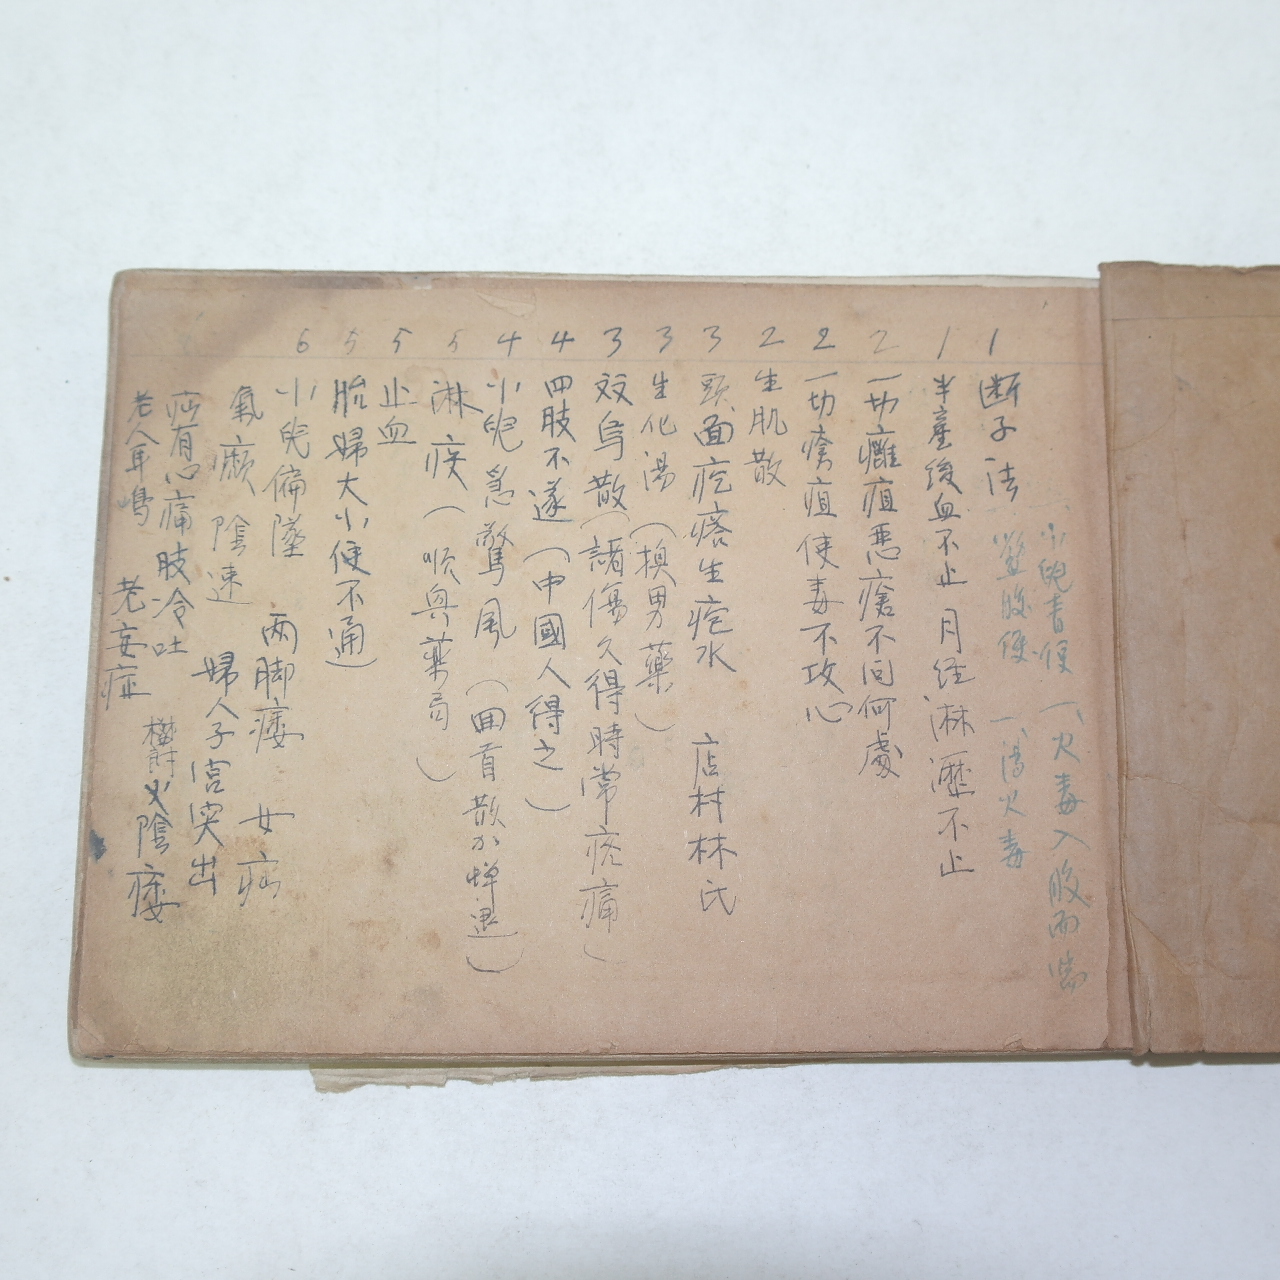 小兒青便 一、火毒入腹而喘
1 断子法 腹便 一、湯火毒
1 半產後血不止 月经淋瀝不止
2 一切癰疽惡瘡不问何處
2 一切瘡疽使毒不攻心
2 生肌散
3 頭面疙瘩生疱水 店村林氏
3 生化湯(換男藥)
3 双烏散(諸傷久得時常疼痛)
4 四肢不遂(中國人得之)
4 小兒急驚風(囬首散加蟬退)
5 淋疾(順興薬局)
5 止血
5 胎婦大小便不通)
6 小兒偏墜 两脚痿 女疝
氣㿗 陰速 婦人子宮突出
疝有心痛肢冷吐 欝火陰痿
老人耳鳴 老妄症